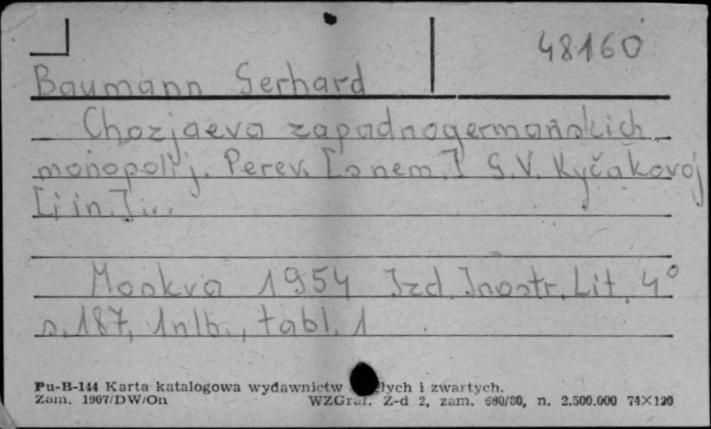 48160
Baumann Gerhard
Chozjaeva zapadnogermanskich
monopolij. Perev. [s nem.] G.V. Kyčakovoj
[i in.]...
Moskva 1954 Izd. Inostr. Lit. 4°
s. 187, 1nlb., tabl. 1
Pu-B-144 Karta katalogowa wydawnictw i zwartych.
Zam. 1907/DW/On WZGraf. Z-d 2, zam. 680/80, n. 2.500.000 74×120